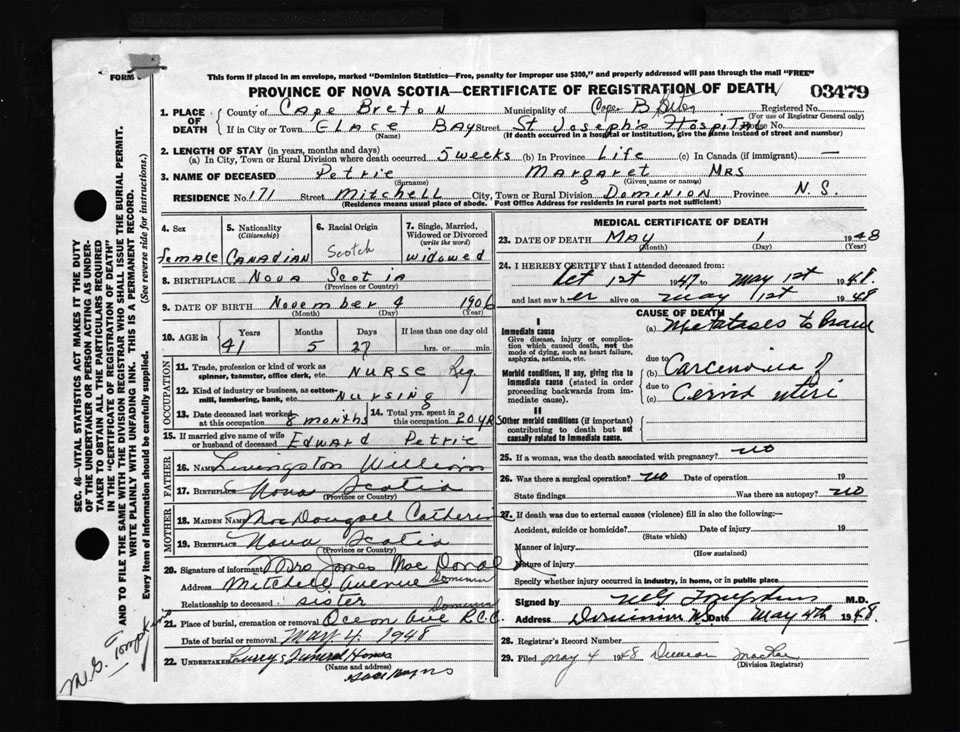 FORM
This form if placed in an envelope, marked "Dominion Statistics—Free, penalty for improper use $300," and properly addressed will pass through the mail "FREE"
PROVINCE OF NOVA SCOTIA—CERTIFICATE OF REGISTRATION OF DEATH 03479
1. PLACE OF DEATH
County of Cape Breton Municipality of Cape B Registered No.
(For use of Registrar General only)
If in City or Town GLACE BAY Street St Joseph's Hospital House No.
(Name) (If death occurred in a hospital or institution, give the name instead of street and number)
2. LENGTH OF STAY (in years, months and days)
(a) In City, Town or Rural Division where death occurred 5 weeks (b) In Province Life (c) In Canada (if immigrant) —
3. NAME OF DECEASED Petrie Margaret Mrs
(Surname) (Given name or names)
RESIDENCE No. 171 Street Mitchell City, Town or Rural Division Dominion Province N.S.
(Residence means usual place of abode. Post Office Address for residents in rural parts not sufficient)
4. Sex
female
5. Nationality
(Citizenship)
Canadian
6. Racial Origin
Scotch
7. Single, Married, Widowed or Divorced
(write the word)
widowed
8. BIRTHPLACE Nova Scotia
(Province or Country)
9. DATE OF BIRTH November 4 1906
(Month) (Day) (Year)
10. AGE in Years Months Days If less than one day old
41 5 27 hrs. or min.
OCCUPATION
11. Trade, profession or kind of work as
spinner, teamster, office clerk, etc. NURSE Reg.
12. Kind of industry or business, as cotton-
mill, lumbering, bank, etc. Nursing
13. Date deceased last worked at this occupation 8 months 14. Total yrs. spent in this occupation 20 yrs
15. If married give name of wife
or husband of deceased Edward Petrie
FATHER
16. Name Livingston William
17. Birthplace Nova Scotia
(Province or Country)
MOTHER
18. Maiden Name MacDougall Catherine
19. Birthplace Nova Scotia
(Province or Country)
20. Signature of informant Mrs James MacDonald
Address Mitchell Avenue Dominion
Relationship to deceased sister
21. Place of burial, cremation or removal Ocean Ave R.C.C. Dominion
Date of burial or removal May 4. 1948
22. Undertaker Curry's Funeral Homes
(Name and address)
Glace Bay NS
MEDICAL CERTIFICATE OF DEATH
23. DATE OF DEATH May 1 1948
(Month) (Day) (Year)
24. I HEREBY CERTIFY that I attended deceased from:
Oct 1st 1947 to May 1st 1948.
and last saw her alive on May 1st 1948
CAUSE OF DEATH
I
Immediate cause
Give disease, injury or complication which caused death, not the mode of dying, such as heart failure, asphyxia, asthenia, etc.
(a) Metatases to brain
due to
Morbid conditions, if any, giving rise to immediate cause (stated in order proceeding backwards from immediate cause).
(b) Carcenoma of
due to
(c) Cervix uteri
II
Other morbid conditions (if important) contributing to death but not causally related to immediate cause.
25. If a woman, was the death associated with pregnancy? no
26. Was there a surgical operation? no Date of operation 19
State findings Was there an autopsy? no
27. If death was due to external causes (violence) fill in also the following:—
Accident, suicide or homicide? Date of injury 19
(State which)
Manner of injury
(How sustained)
Nature of injury
Specify whether injury occurred in industry, in home, or in public place
Signed by M G Tompkins M.D.
Address Dominion N.S. Date May 4th 1948.
28. Registrar's Record Number
29. Filed May 4 1948 Duncan
(Division Registrar)
SEC. 46—VITAL STATISTICS ACT MAKES IT THE DUTY
OF THE UNDERTAKER OR PERSON ACTING AS UNDER-
TAKER TO OBTAIN ALL THE PARTICULARS REQUIRED
IN THE "CERTIFICATE OF REGISTRATION OF DEATH"
AND TO FILE THE SAME WITH THE DIVISION REGISTRAR WHO SHALL ISSUE THE BURIAL PERMIT.
WRITE PLAINLY WITH UNFADING INK. THIS IS A PERMANENT RECORD.
Every item of information should be carefully supplied. (See reverse side for instructions.)
M. G. Tompkins